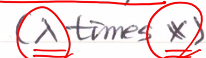 (λ times *)